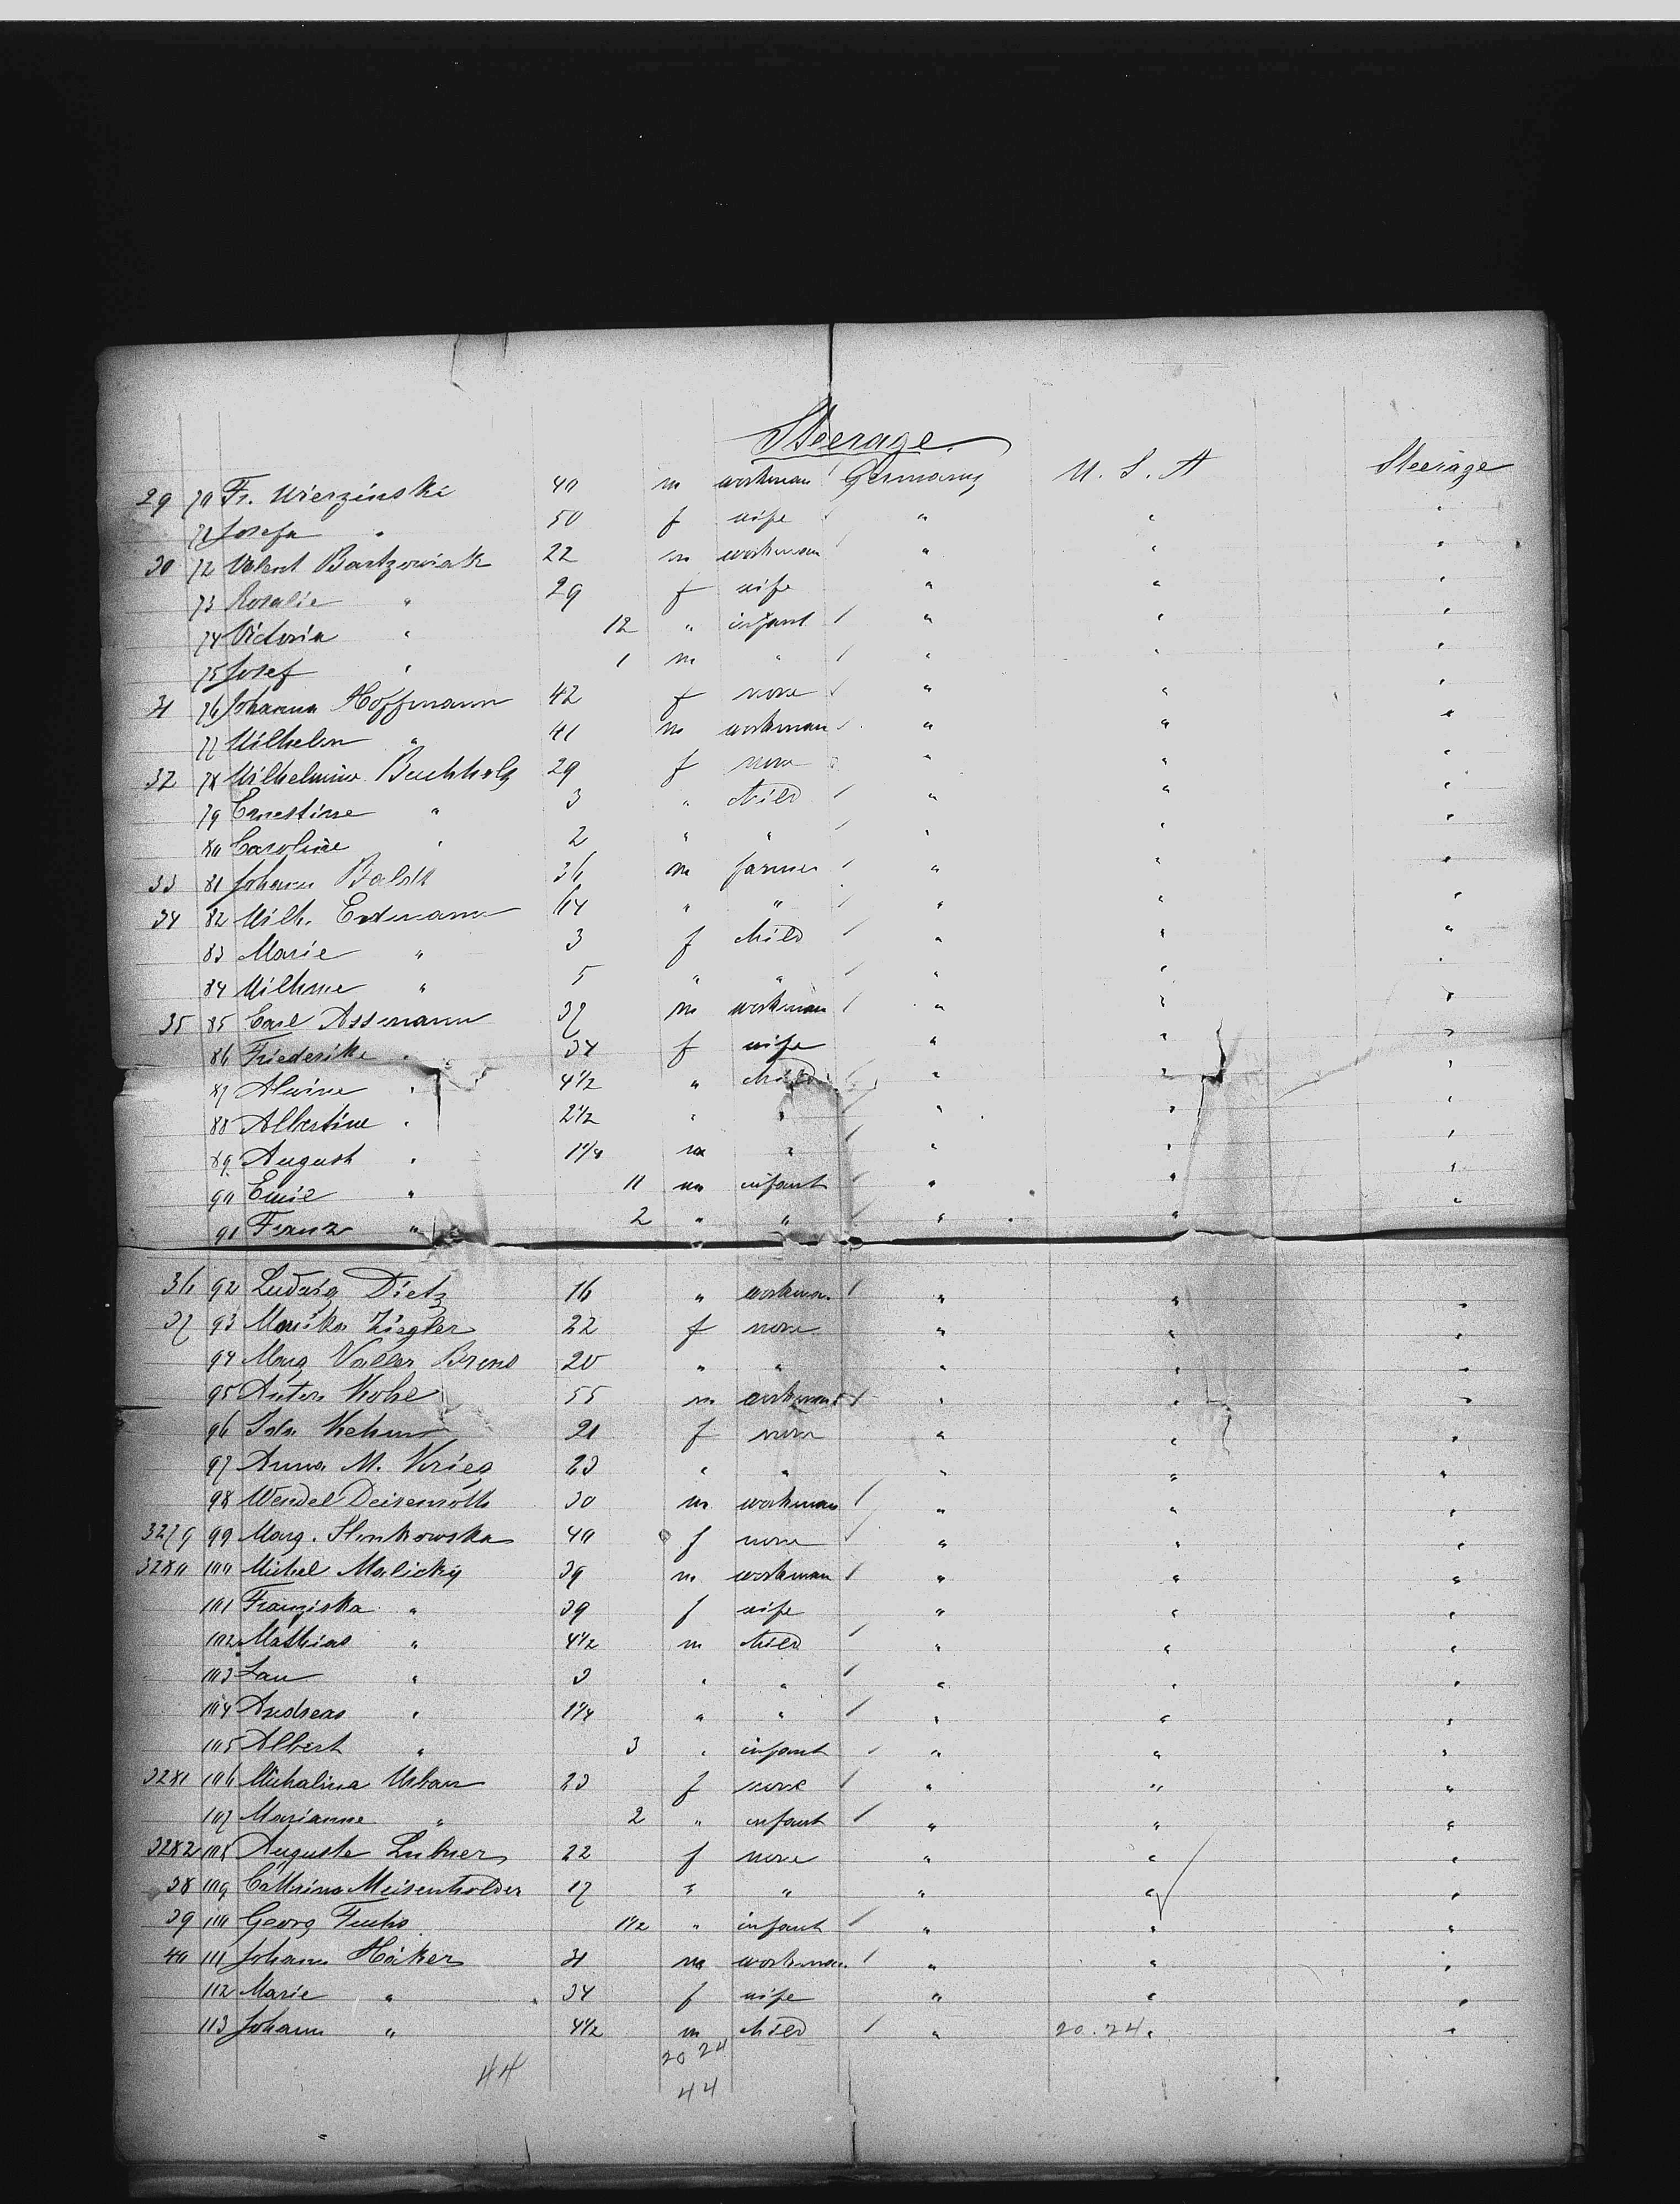 Steerage
29 70 Fr. Wierzinski 40 m workman Germany U. S. A Steerage
71 Josefa " 50 f wife " " "
30 72 Valent Bartzowiak 22 m workman " " "
73 Rosalie " 29 f wife " " "
74 Victoria " 12 " infant / " " "
75 Josef " 1 m " / " " "
31 76 Johanna Hoffmann 42 f none / " " "
77 Wilhelm " 41 m workman / " " "
32 78 Wilhelmine Buchholz 29 f none " " "
79 Ernestine " 3 " child / " " "
80 Caroline " 2 " " / " " "
33 81 Johann 36 m farmer / " " "
34 82 Wilh. Erdmann 64 " " / " " "
83 Marie " 3 f child / " " "
84 Wilhme " 5 " " / " " "
35 85 Carl Assmann 37 m workman / " " "
86 Friederike " 34 f wife " " "
87 Alwine " 4 1/2 " child / " " "
88 Albertine " 2 1/2 " " / " " "
89 August " 1 1/4 m " / " " "
90 Emil " 11 m infant / " " "
91 Franz " 2 " " / " " "
36 92 Ludwig Dietz 16 " workman / " " "
37 93 Ziegler 22 f none " " "
94 Marg 20 " " " " "
95 Anton Kohl 55 m workman / " " "
96 Ida 21 f none " " "
97 Anna M. Krieg 23 " " " " "
98 Wendel Deisenroth 30 m workman / " " "
3279 99 Marg. 40 f none / " " "
3280 100 Michel Malicky 39 m workman / " " "
101 Franziska " 39 f wife " " "
102 Mathias " 4 1/2 m child / " " "
103 " 3 " " / " " "
104 Andreas " 1 1/4 " " / " " "
105 Albert " 3 " infant / " " "
3281 106 Michalina Urban 23 f none / " " "
107 Marianne " 2 " infant / " " "
3282 108 Auguste 22 f none " " "
38 109 Cathrina Meisenholder 17 " " " " "
39 110 Georg Fuchs 1 1/2 " infant / " " "
40 111 Johann Häker 31 m workman / " " "
112 Marie " 34 f wife " " "
113 Johann " 4 1/2 m child / " 20.24 " "
20 24
44 44